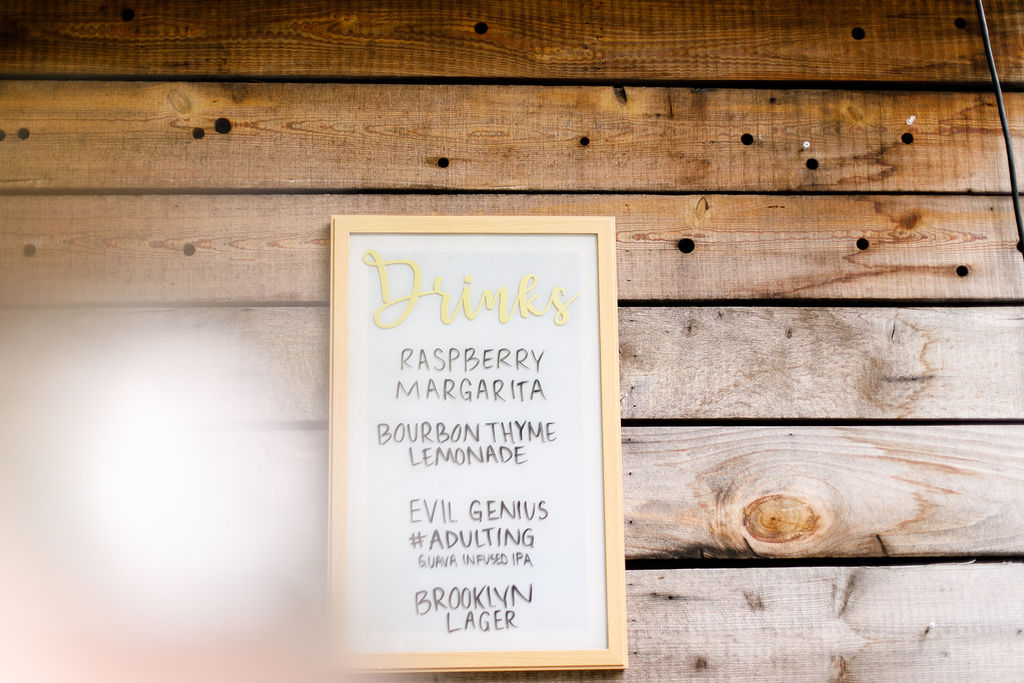 Drinks
RASPBERRY
MARGARITA
BOURBON THYME
LEMONADE
EVIL GENIUS
#ADULTING
GUAVA INFUSED IPA
BROOKLYN
LAGER